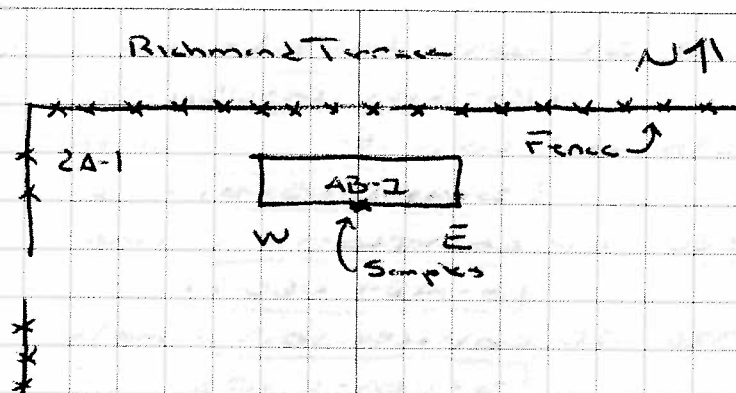 Richmond Terrace
N
Fence
2A-1
AB-1
W E
Samples